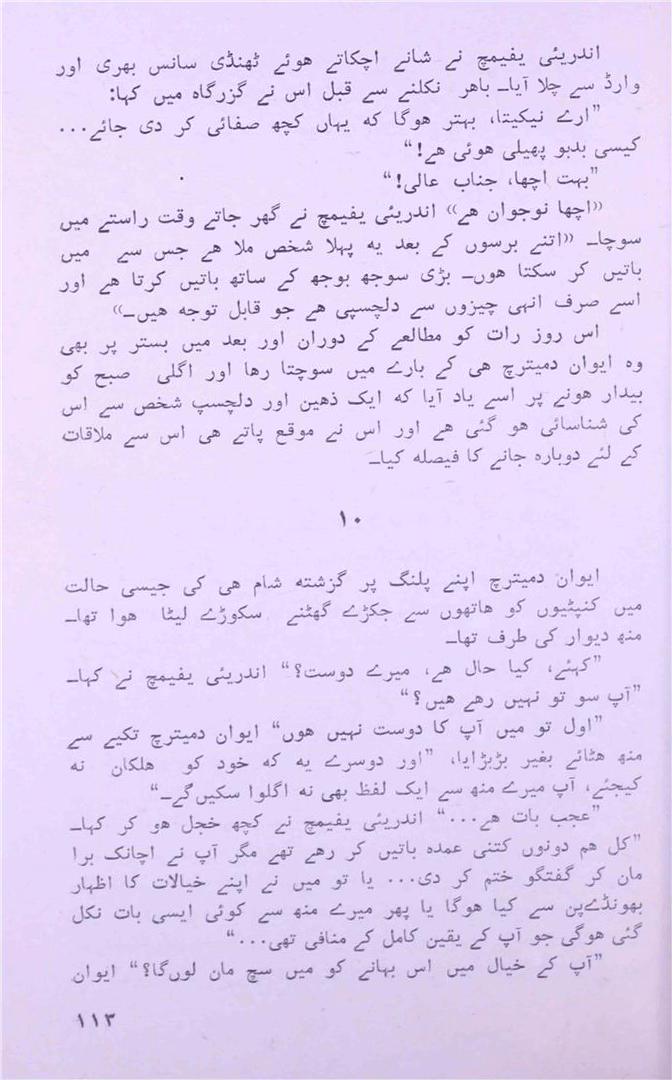 اندریئی یفیمچ نے شانے اچکاتے ہوئے ٹھنڈی سانس بھری اور
وارڈ سے چلا آیا۔ باہر نکلنے سے قبل اس نے گزرگاہ میں کہا:
”ارے نیکیتا، بہتر ہوگا کہ یہاں کچھ صفائی کر دی جائے...
کیسی بدبو پھیلی ہوئی ہے!“
”بہت اچھا، جناب عالی!“
«اچھا نوجوان ہے» اندریئی یفیمچ نے گھر جاتے وقت راستے میں
سوچا۔ «اتنے برسوں کے بعد یہ پہلا شخص ملا ہے جس سے میں
باتیں کر سکتا ہوں۔ بڑی سوجھ بوجھ کے ساتھ باتیں کرتا ہے اور
اسے صرف انہی چیزوں سے دلچسپی ہے جو قابل توجہ ہیں۔»
اس روز رات کو مطالعے کے دوران اور بعد میں بستر پر بھی
وہ ایوان دمیترچ ہی کے بارے میں سوچتا رہا اور اگلی صبح کو
بیدار ہونے پر اسے یاد آیا کہ ایک ذہین اور دلچسپ شخص سے اس
کی شناسائی ہو گئی ہے اور اس نے موقع پاتے ہی اس سے ملاقات
کے لئے دوبارہ جانے کا فیصلہ کیا۔
۱۰
ایوان دمیترچ اپنے پلنگ پر گزشتہ شام ہی کی جیسی حالت
میں کنپٹیوں کو ہاتھوں سے جکڑے گھٹنے سکوڑے لیٹا ہوا تھا۔
منھ دیوار کی طرف تھا۔
”کہئے، کیا حال ہے، میرے دوست؟“ اندریئی یفیمچ نے کہا۔
”آپ سو تو نہیں رہے ہیں؟“
”اول تو میں آپ کا دوست نہیں ہوں“ ایوان دمیترچ تکیے سے
منھ ہٹائے بغیر بڑبڑایا، ”اور دوسرے یہ کہ خود کو ہلکان نہ
کیجئے، آپ میرے منھ سے ایک لفظ بھی نہ اگلوا سکیں گے۔“
”عجب بات ہے...“ اندریئی یفیمچ نے کچھ خجل ہو کر کہا۔
”کل ہم دونوں کتنی عمدہ باتیں کر رہے تھے مگر آپ نے اچانک برا
مان کر گفتگو ختم کر دی... یا تو میں نے اپنے خیالات کا اظہار
بھونڈےپن سے کیا ہوگا یا پھر میرے منھ سے کوئی ایسی بات نکل
گئی ہوگی جو آپ کے یقین کامل کے منافی تھی...“
”آپ کے خیال میں اس بہانے کو میں سچ مان لوں گا؟“ ایوان
۱۱۳